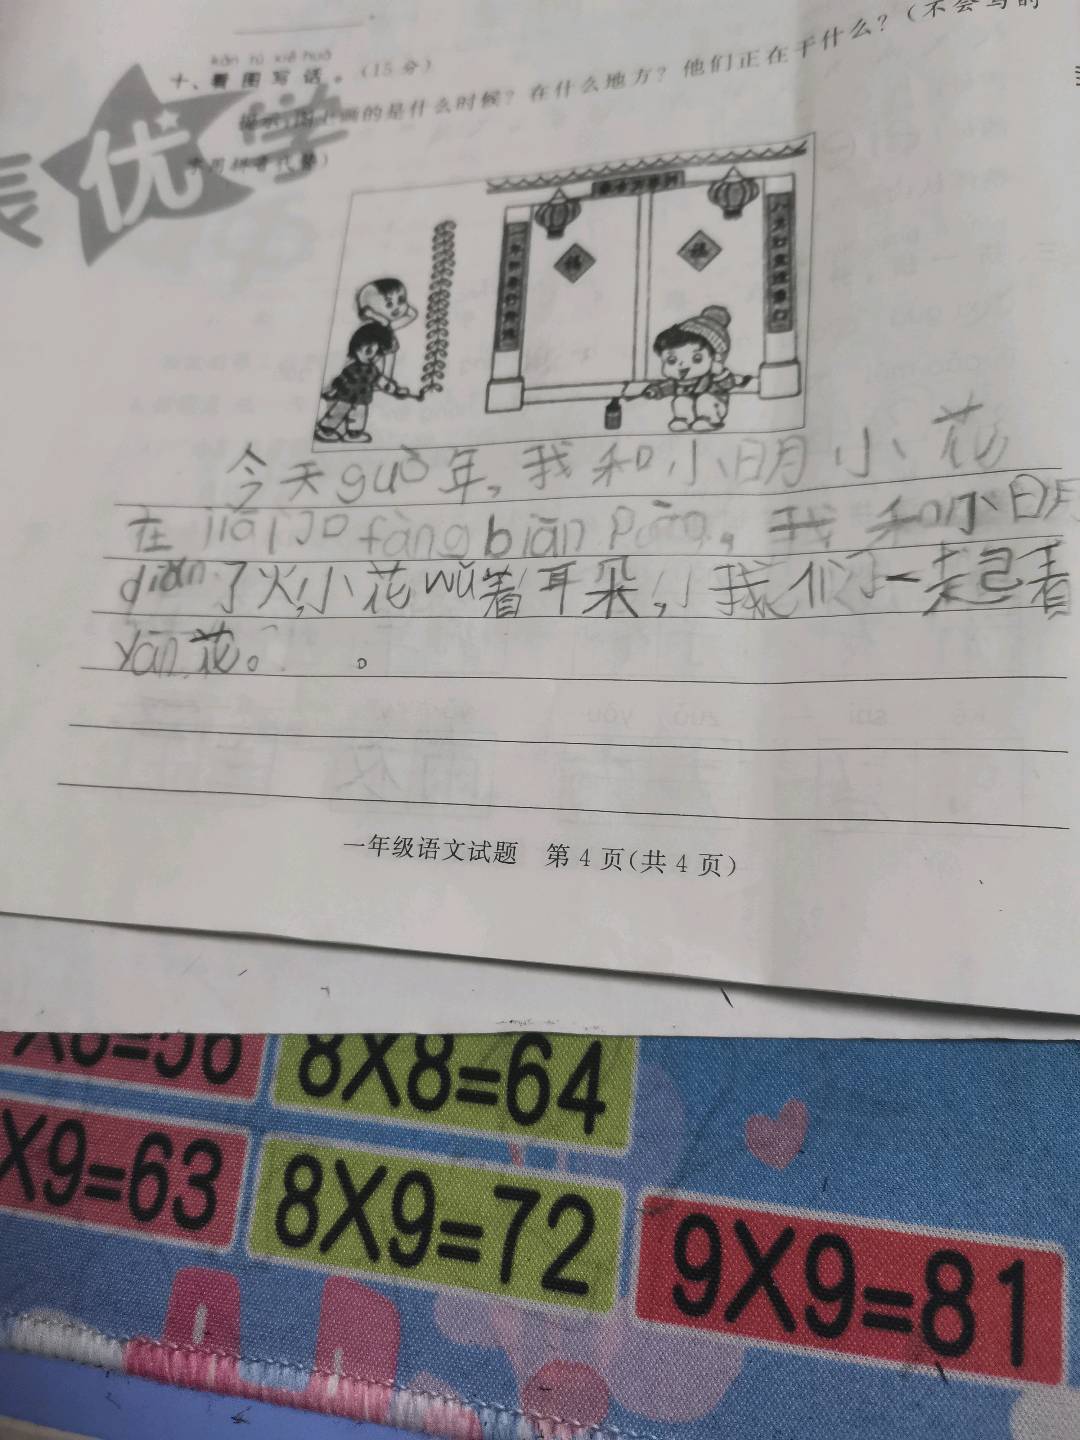 kàn tú xiě huà
十、看图写话。（15分）
提示：图上画的是什么时候？在什么地方？他们正在干什么？（不会写的
字用拼音代替）
优学
福
福
今天guò年，我和小明小花
在fàng biān pào，我和小明
diǎn了火，小花wǔ着耳朵，我们一起看
yān花。
一年级语文试题 第4页（共4页）
8=56
8X8=64
X9=63
8X9=72
9X9=81